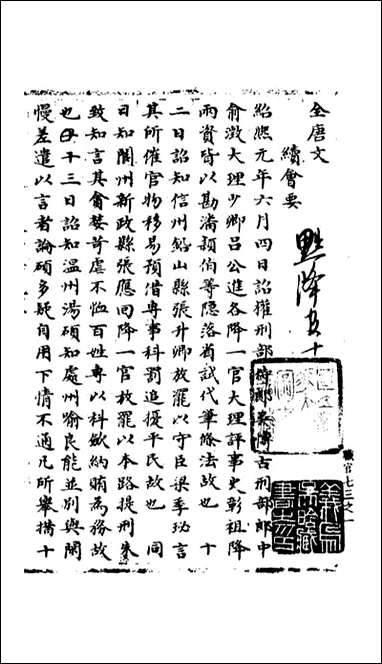 全唐文
續會要
黜降五十
紹熙元年六月四日詔權刑部侍郎吳博古刑部郎中
俞澂大理少卿呂公進各降一官大理評事史彰祖降
兩資皆以勘潘穎伯等隱落省試代筆條法故也 十
二日詔知信州鉛山縣張升卿放罷以守臣梁季珌言
其所催官物移易預借專事科罰追擾平民故也 同
日知閬州新政縣張應回降一官放罷以本路提刑朱
致知言其貪婪苛虐不恤百姓專以科斂納賄為務故
也 十三日詔知溫州湯碩知處州喻良能並別與閑
慢差遣以言者論碩多疑自用下情不通凡所舉措十
職官七三之一